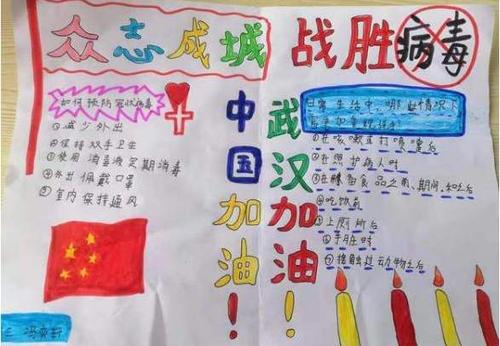 众志成城
战胜病毒
如何预防冠状病毒
①减少外出
②保持双手卫生
③使用消毒液定期消毒
④外出佩戴口罩
⑤室内保持通风
中国加油!
武汉加油!
日常生活中，哪些情况下
①在咳嗽或打喷嚏后
②在照护病人时
③在准备食品之前、期间和之后
④吃饭前
⑤上厕所后
⑥手脏时
⑦接触过动物之后